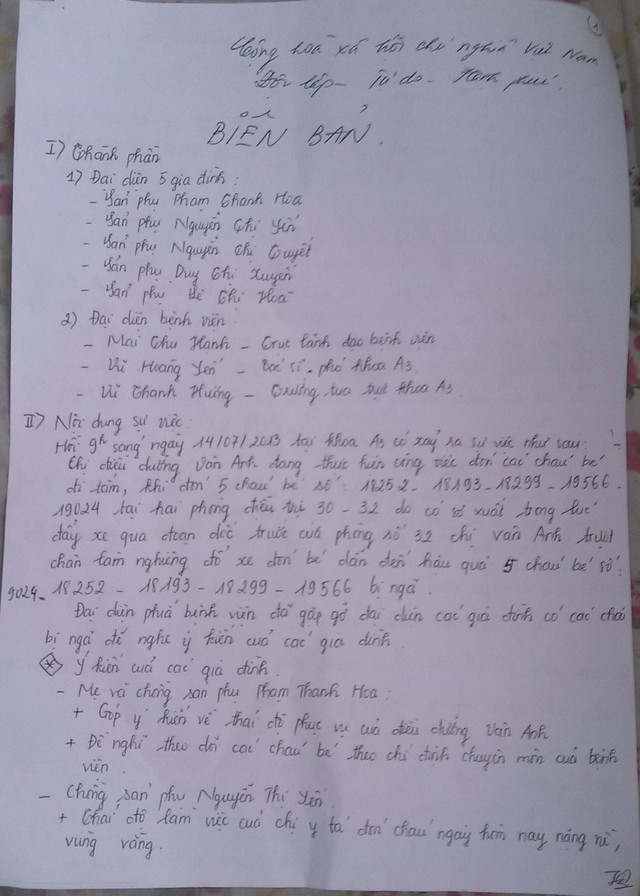 1
Cộng hoà xã hội chủ nghĩa Việt Nam
Độc lập - Tự do - Hạnh phúc.
BIÊN BẢN.
I) Thành phần
1) Đại diện 5 gia đình :
- Sản phụ Phạm Thanh Hoa
- Sản phụ Nguyễn Thị Yến
- Sản phụ Nguyễn Thị Quyết
- Sản phụ Duy Thị Xuyến
- Sản phụ Lê Thị Hoà
2) Đại diện bệnh viện
- Mai Thu Hạnh - Trực lãnh đạo bệnh viện
- Vi Hoàng Yến - Bác sĩ - phó khoa A3
- Vi Thanh Hương - Trưởng tua trực khoa A3
II) Nội dung sự việc :
Hồi 9h sáng ngày 14/07/2013 tại khoa A3 có xảy ra sự việc như sau: -
Chị điều dưỡng Vân Anh đang thực hiện công việc đón các cháu bé
đi tắm, khi đón 5 cháu bé số : 18252 - 18193 - 18299 - 19566 -
19024 tại hai phòng điều trị 30 - 32 do có sơ xuất trong lúc
đẩy xe qua đoạn dốc trước cửa phòng số 32 chị Vân Anh trượt
chân làm nghiêng đổ xe đón bé dẫn đến hậu quả 5 cháu bé số:
9024 - 18252 - 18193 - 18299 - 19566 bị ngã .
Đại diện phía bệnh viện đã gặp gỡ đại diện các gia đình có các cháu
bị ngã để nghe ý kiến của các gia đình .
* Ý kiến của các gia đình .
- Mẹ và chồng sản phụ Phạm Thanh Hoa :
+ Góp ý kiến về thái độ phục vụ của điều dưỡng Vân Anh
+ Đề nghị theo dõi các cháu bé theo chỉ định chuyên môn của bệnh
viện .
- Chồng sản phụ Nguyễn Thị Yến
+ Thái độ làm việc của chị y tá đón cháu ngày hôm nay nặng nề,
vùng vằng .